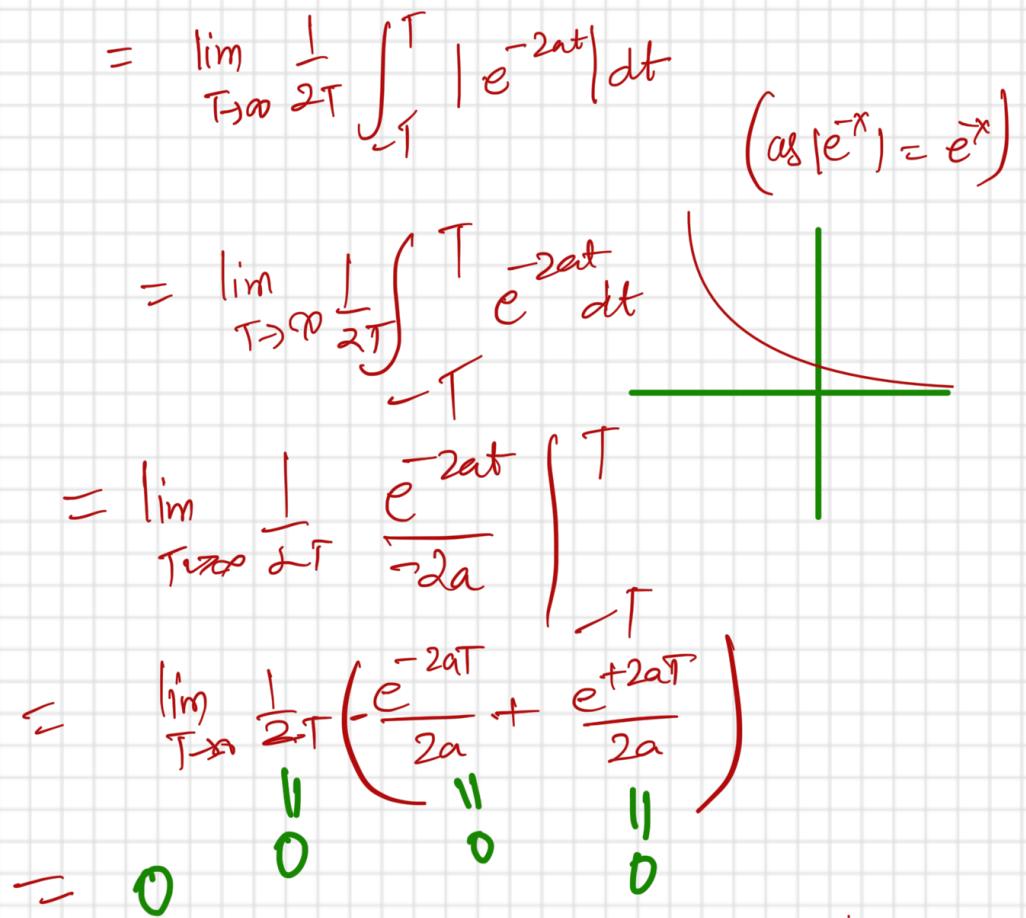 = lim T→∞ 1/2T ∫_{-T}^{T} |e^{-2at}| dt
(as |e^{-x}| = e^{-x})
= lim T→∞ 1/2T ∫_{-T}^{T} e^{-2at} dt
= lim T→∞ 1/2T e^{-2at}/-2a |_{-T}^{T}
= lim T→∞ 1/2T (-e^{-2aT}/2a + e^{+2aT}/2a)
= 0 = 0 = 0
= 0